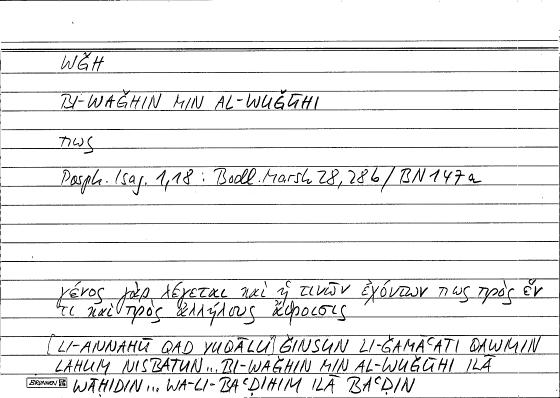 WǦH
BI-WAǦHIN MIN AL-WUǦŪHI
πως
Porph. Isag. 1,18 : Bodl. Marsh 28, 28b / BN 147a
γένος γὰρ λέγεται καὶ ἡ τινῶν ἐχόντων πως πρὸς ἕν
τι καὶ πρὸς ἀλλήλους ἄθροισις
[LI-ANNAHŪ QAD YUQĀLU] ǦINSUN LI-ǦAMĀʿATI QAWMIN
LAHUM NISBATUN... BI-WAǦHIN MIN AL-WUǦŪHI ILĀ
WĀḤIDIN... WA-LI-BAʿḌIHIM ILĀ BAʿḌIN
BRUNNEN